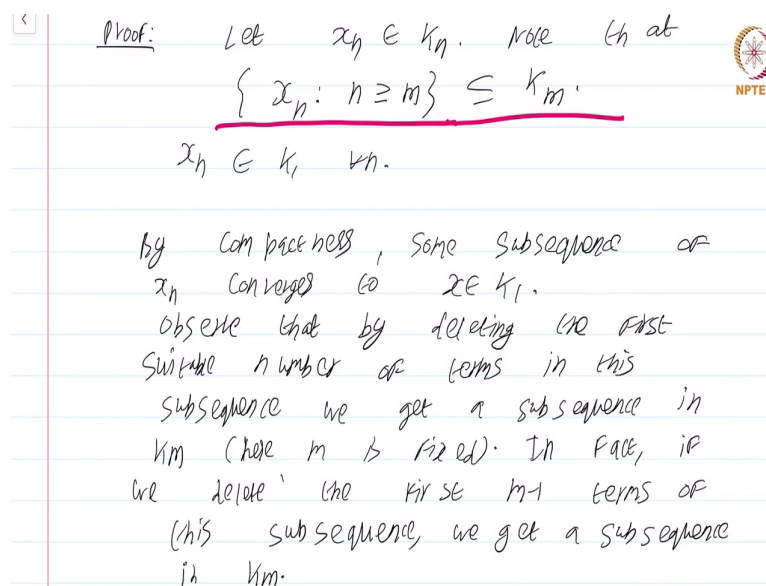 Proof: Let xₙ ∈ Kₙ. Note that
{ xₙ : n ≥ m} ⊆ Kₘ.
xₙ ∈ K₁ ∀n.
By compactness, some subsequence of
xₙ converges to x∈ K₁.
Observe that by deleting the first
suitable number of terms in this
subsequence we get a subsequence in
Km (here m is fixed). In fact, if
we delete the first m-1 terms of
this subsequence, we get a subsequence
in Km.
NPTE